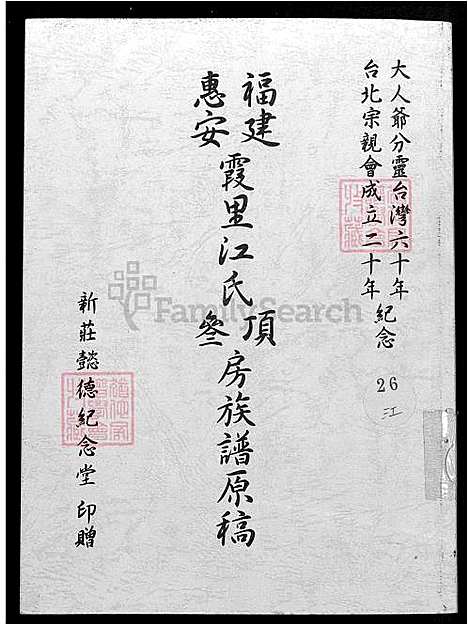 大人爺分靈台灣六十年
台北宗親會成立二十年紀念
26
江
福建
惠安
霞里江氏
頂
叄
房族譜原稿
新莊懿德紀念堂 印贈
FamilySearch